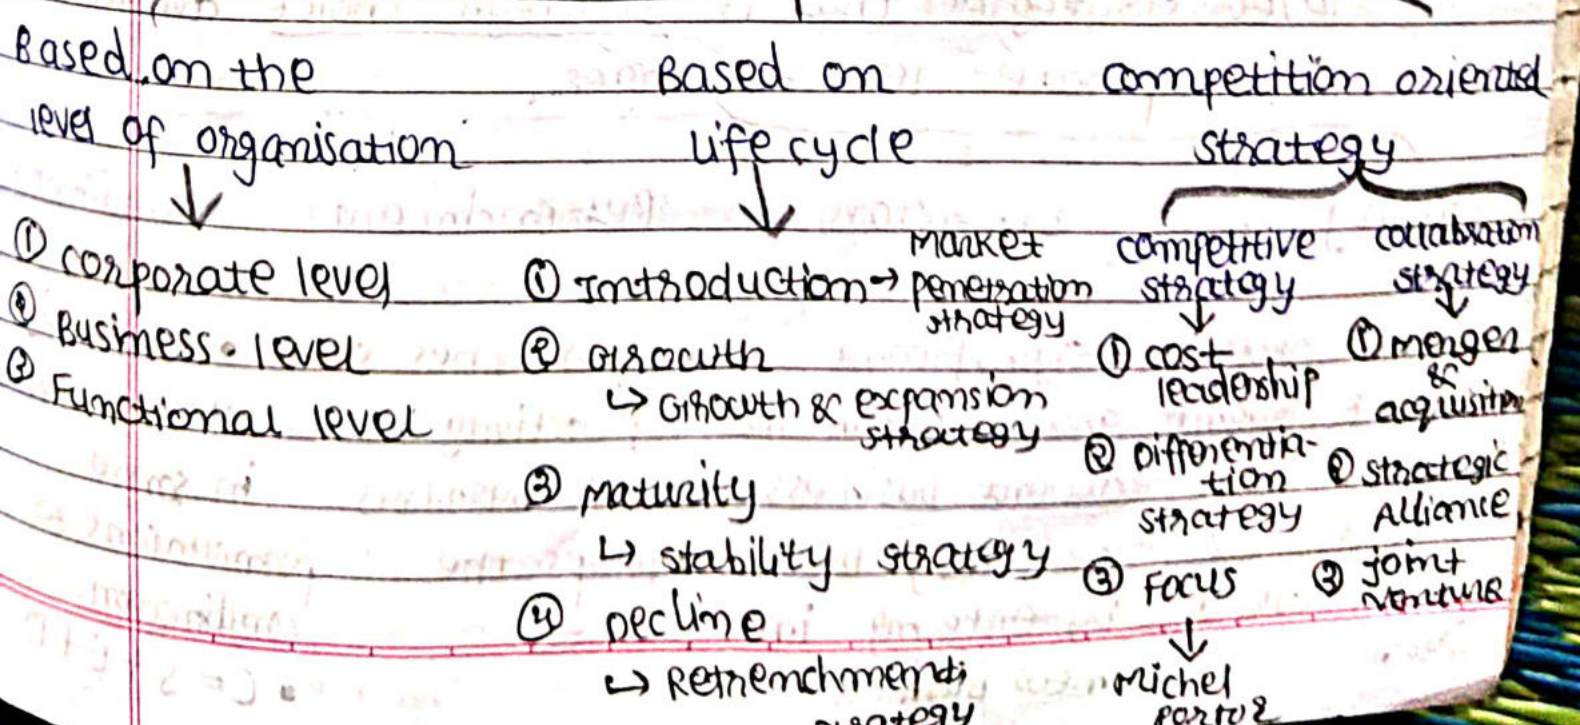 Based on the
level of organisation
↓
① corporate level
② Business level
③ Functional level
Based on
life cycle
↓
① Introduction → market
penetration
strategy
② Growth
↳ Growth & expansion
strategy
③ maturity
↳ stability strategy
④ Decline
↳ Retrenchment
strategy
competition oriented
strategy
competitive
strategy
↓
① cost
leadership
② Differentia-
tion
strategy
③ Focus
↓
Michel
Porter
collabration
strategy
↓
① merger
&
acquisition
② strategic
Alliance
③ joint
venture